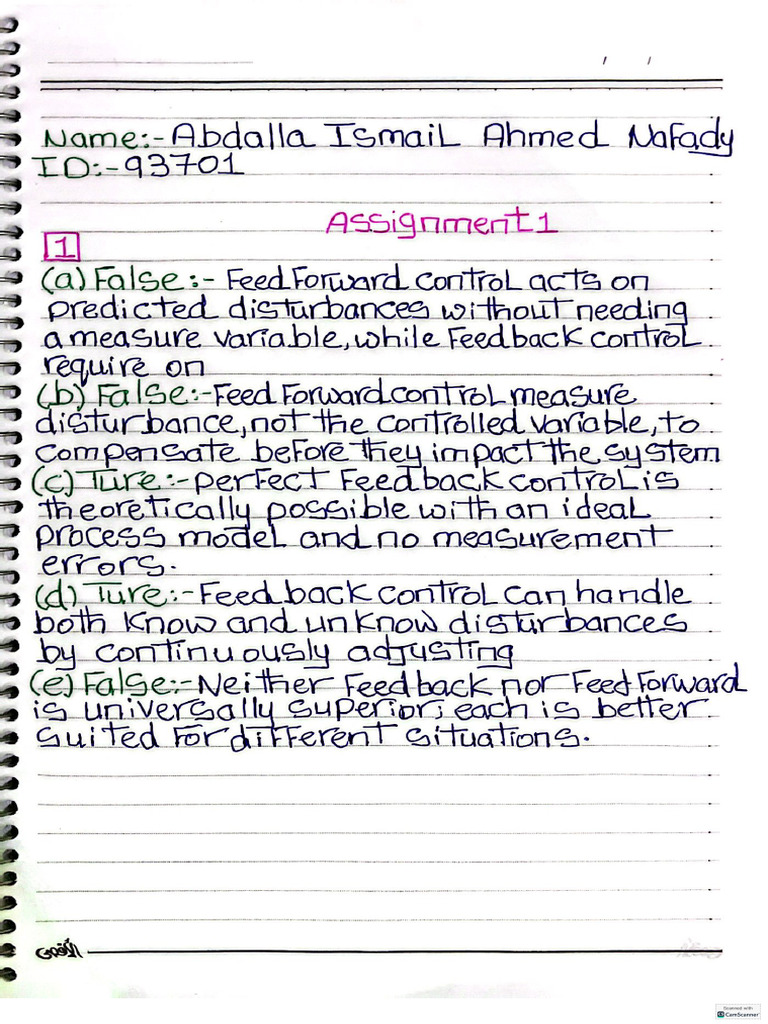 / /
Name:- Abdalla Ismail Ahmed Nafady
ID:-93701
Assignment1
1
(a) False:- Feed Forward control acts on
predicted disturbances without needing
a measure variable, while Feedback control
require on
(b) False:- Feed Forward control measure
disturbance, not the controlled variable, to
compensate before they impact the system
(c) Ture:- perfect Feedback control is
theoretically possible with an ideal
process model and no measurement
errors.
(d) Ture:- Feedback control can handle
both know and unknow disturbances
by continuously adjusting
(e) False:- Neither Feedback nor Feed Forward
is universally superior; each is better
suited for different situations.
Scanned with
CamScanner